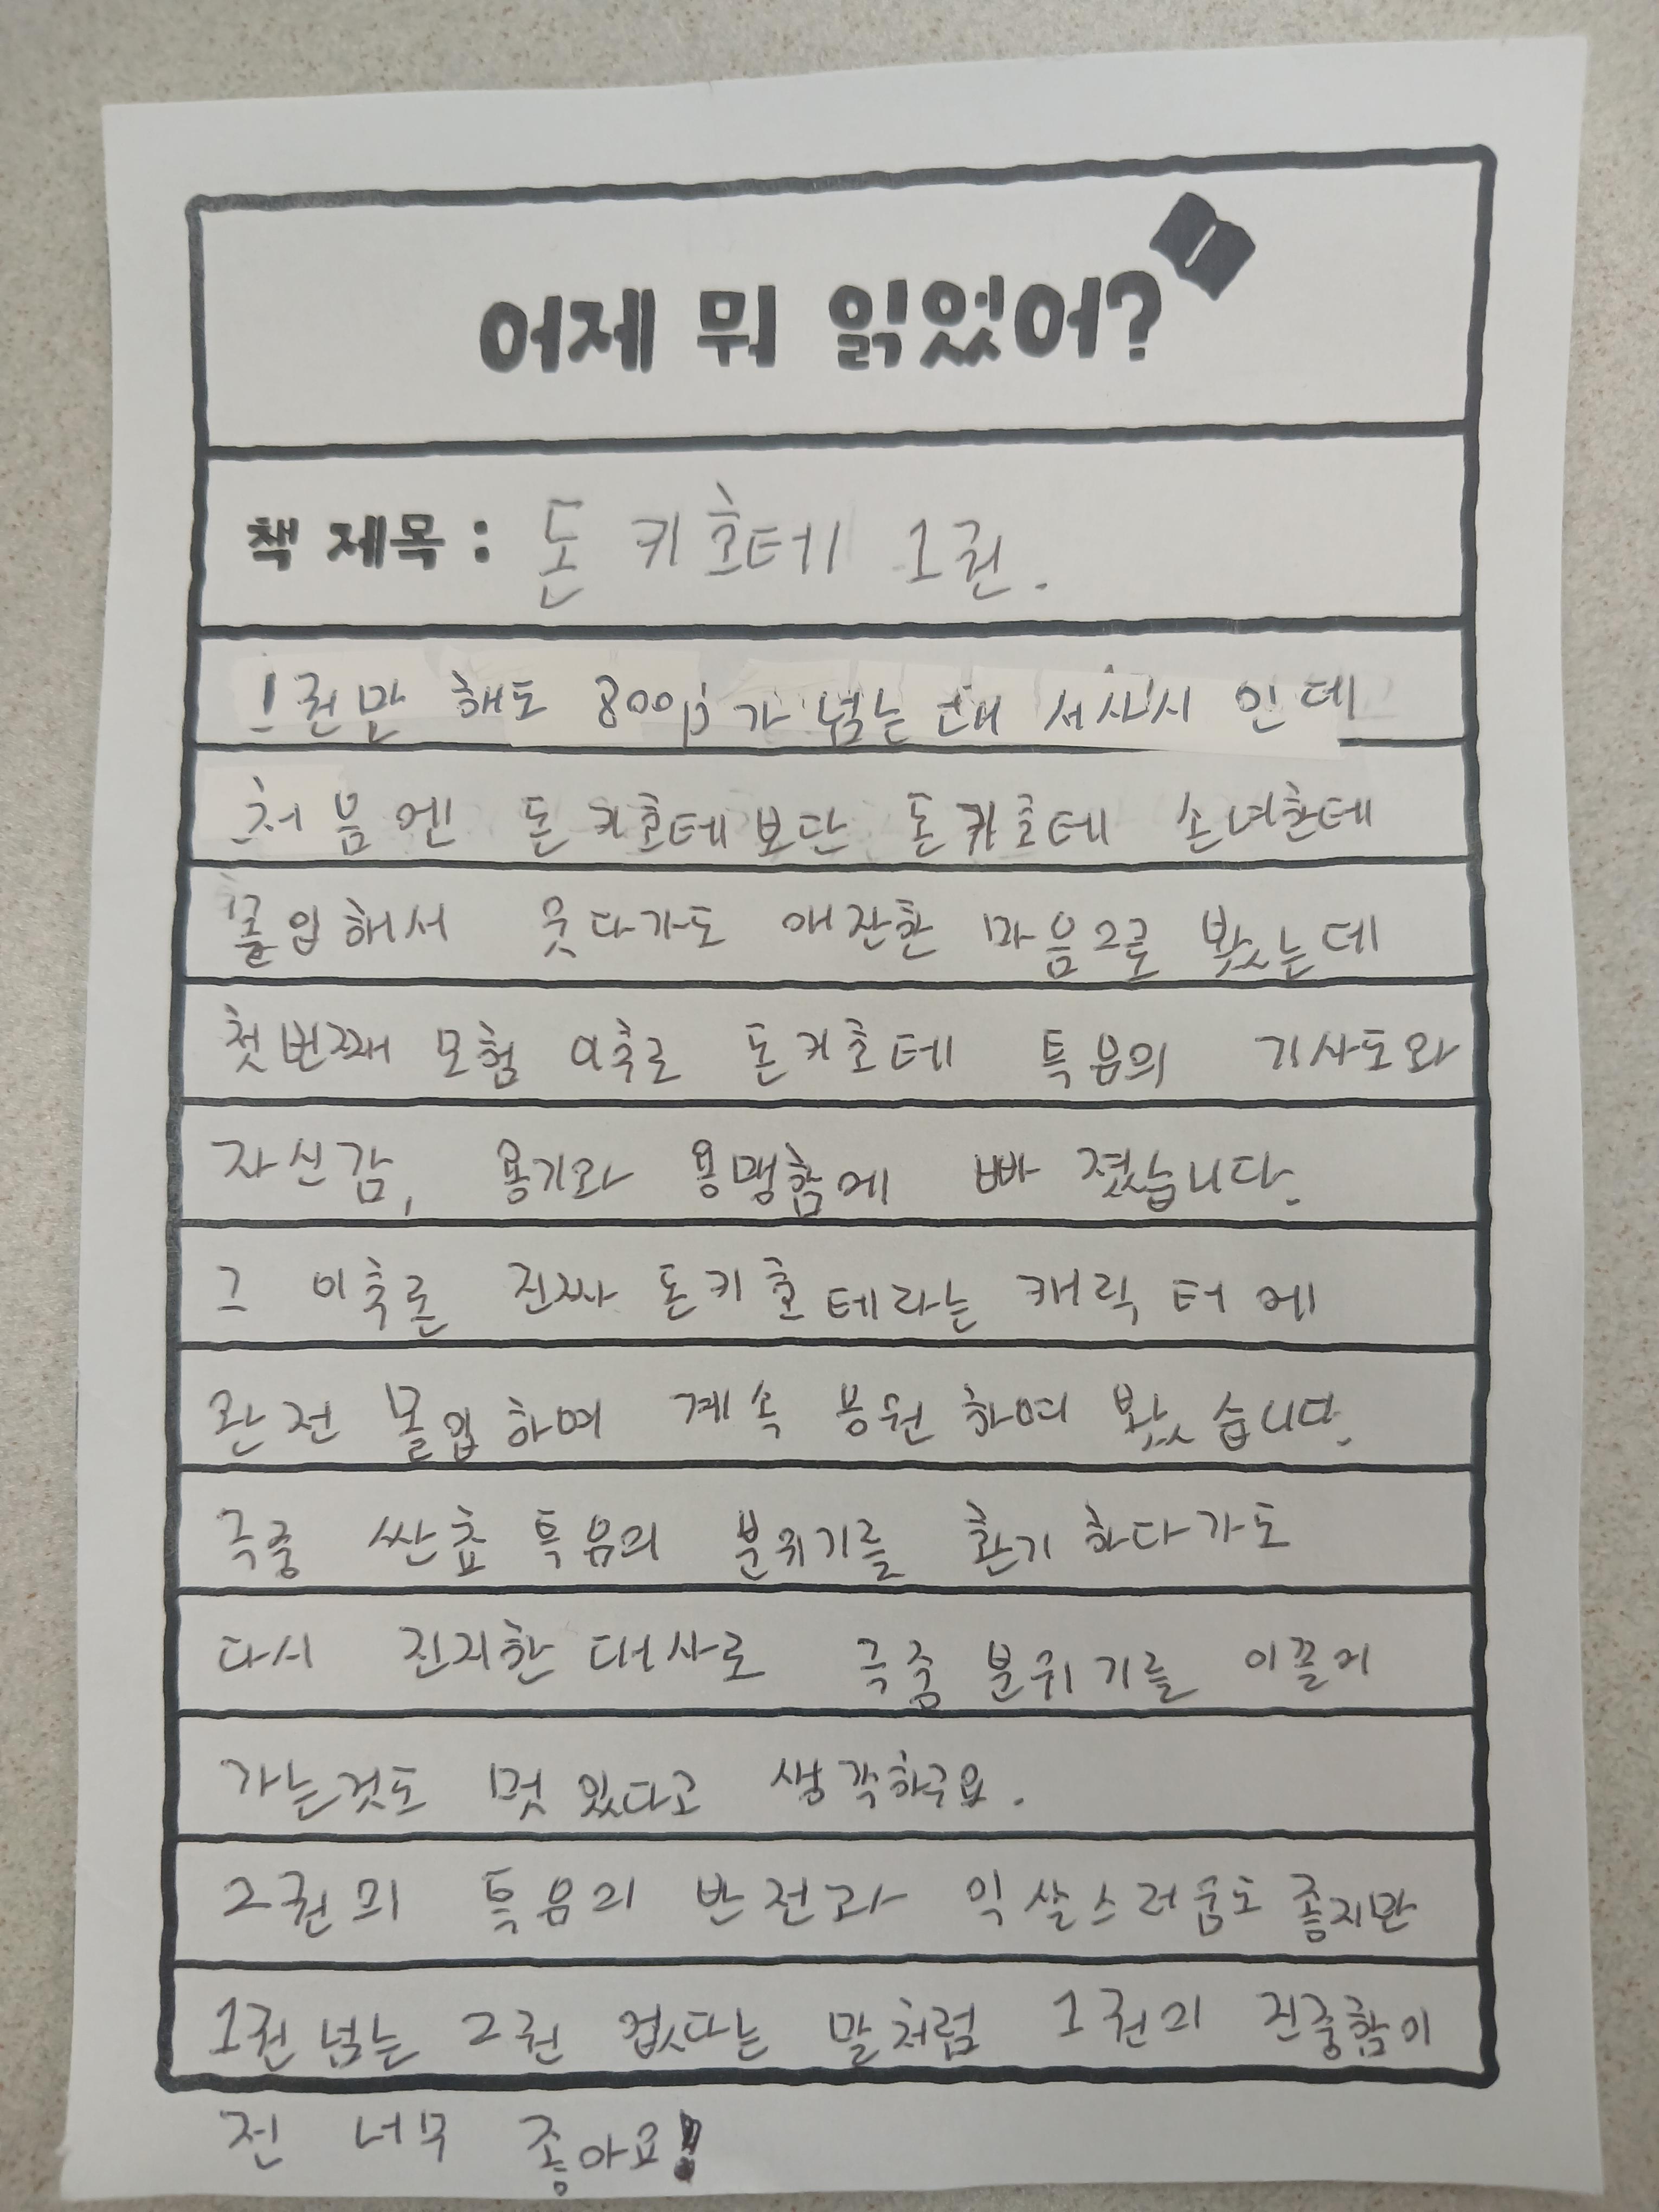 어제 뭐 읽었어?
책 제목 : 돈 키호테 1권.
1권만 해도 800p가 넘는 대 서사시 인데
처음엔 돈키호테보단 돈키호테 손녀한테
몰입해서 웃다가도 애잔한 마음으로 봤는데
첫번째 모험 이후로 돈키호테 특유의 기사도와
자신감, 용기와 용맹함에 빠 졌습니다.
그 이후론 진짜 돈키호테라는 캐릭터에
완전 몰입하여 계속 응원하여 봤습니다.
극중 싼쵸 특유의 분위기를 환기 하다가도
다시 진지한 대사로 극중 분위기를 이끌어
가는것도 멋 있다고 생각하구요.
2권의 특유의 반전과 익살스러움도 좋지만
1권 넘는 2권 없다는 말처럼 1권의 진중함이
전 너무 좋아요!